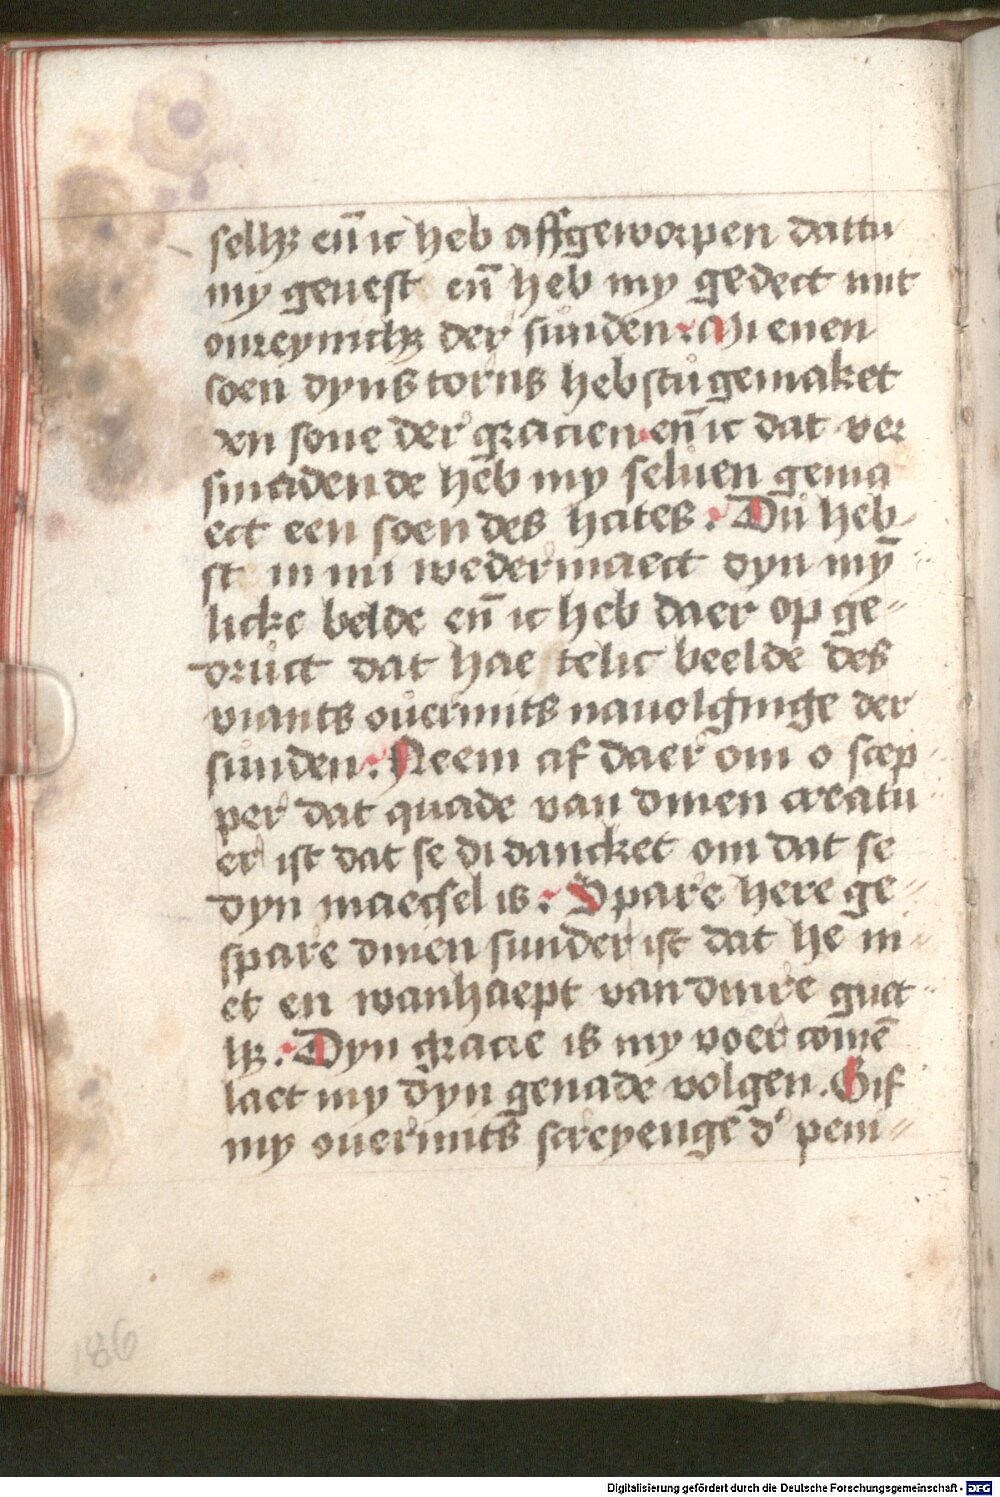 selhꝫ en̄ ic heb affgeworpen dattu
my geuest en̄ heb my gedect mit
onreynichꝫ der sunden. Mi enen
soen dyns torns hebstu gemaket
en sone der gracien. en̄ ic dat ver
smadende heb my seluen gema
ect een soen des hates. Du heb
st in mi wedermaect dyn myn̄
licke belde en̄ ic heb daer op ge=
druct dat hae telic beelde des
viants ouermits nauolginge der
sunden. Neem af daer om o scep
per dat quade van dinen creatu
er ist dat se di dancket om dat se
dyn maecsel is. Spare here ge=
spare dinen sunder ist dat he ni=
et en wanhaept van dinre guet=
hꝫ. Dyn gracie is my voer comē
laet my dyn genade volgen. Gif
my ouermits screyenge d' peni=
186
Digitalisierung gefördert durch die Deutsche Forschungsgemeinschaft - DFG